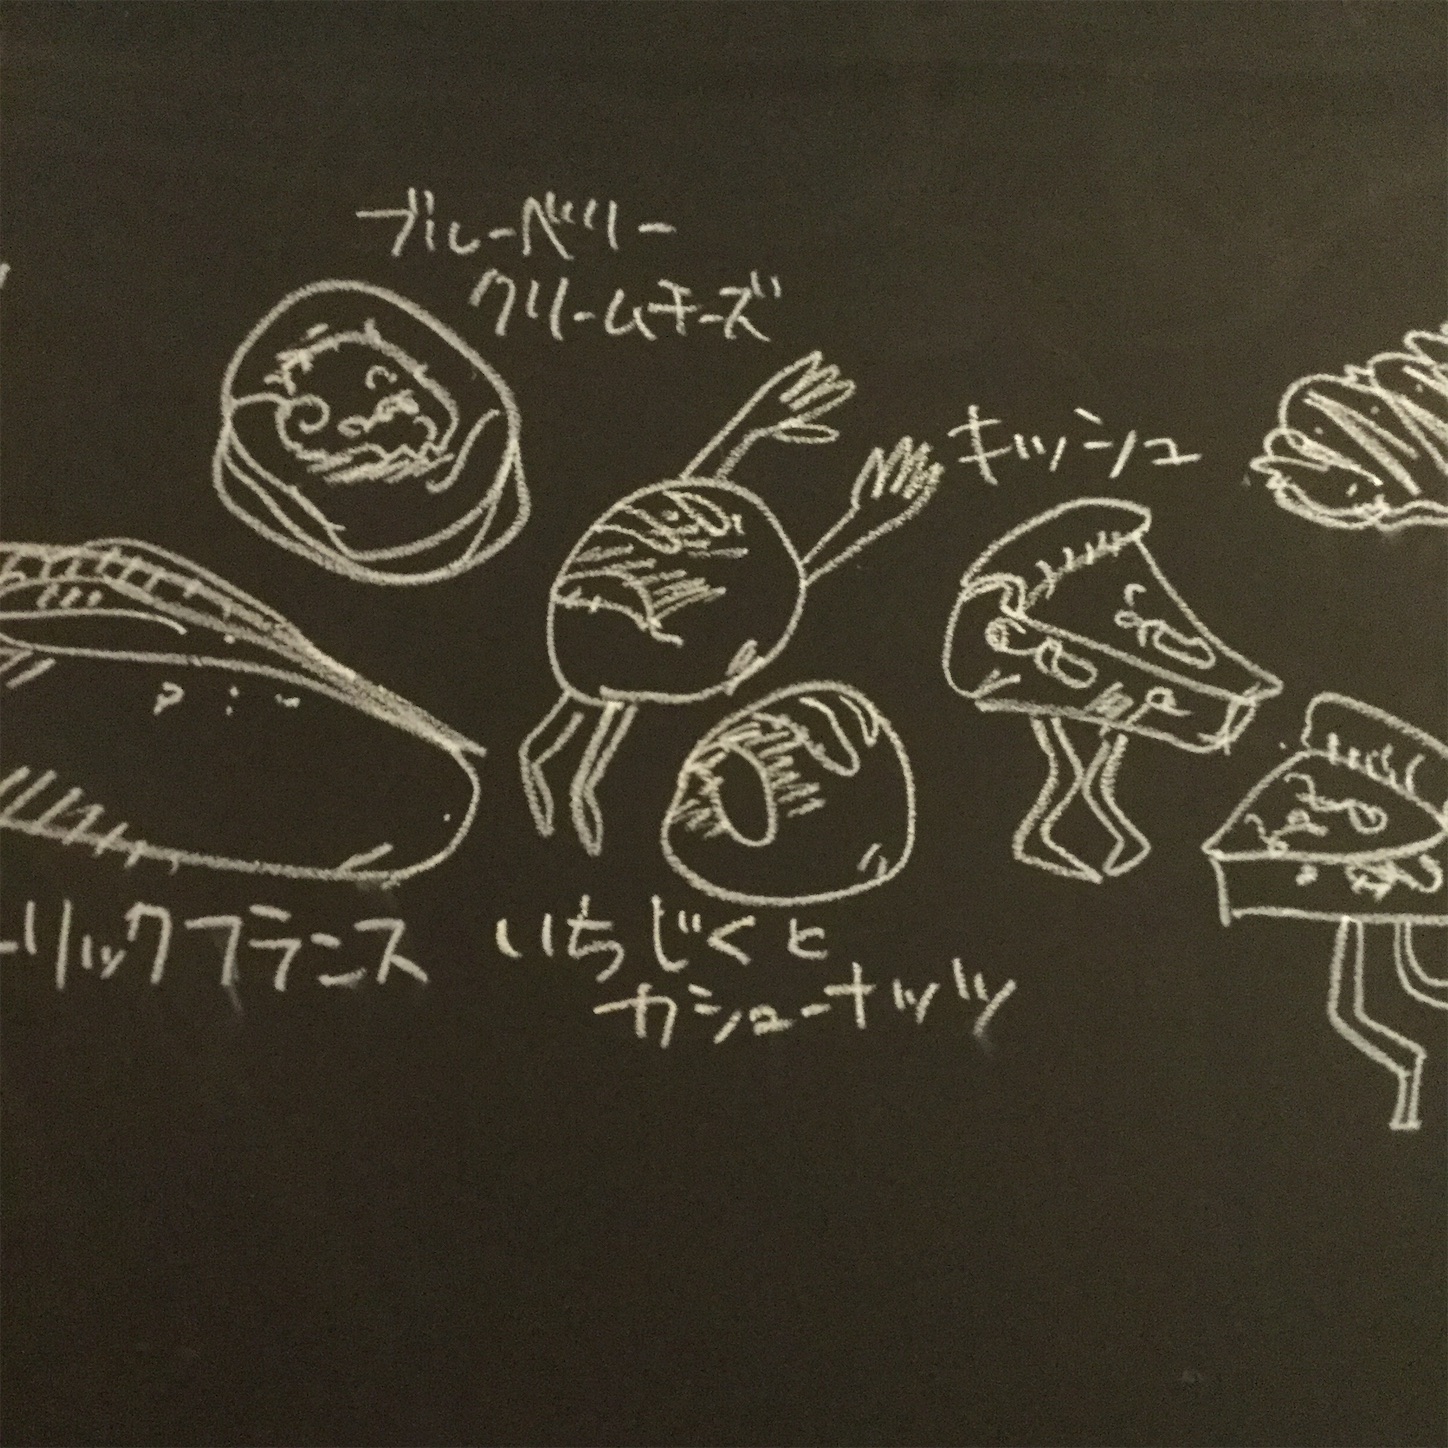 ブルーベリー
クリームチーズ
キッシュ
ーリックフランス
いちじくと
カシューナッツ